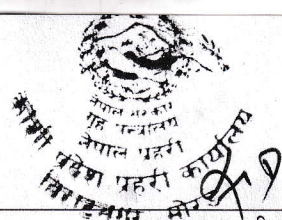 नेपाल सरकार
गृह मन्त्रालय
नेपाल प्रहरी
कोशी प्रदेश प्रहरी कार्यालय
विराटनगर मोरङ